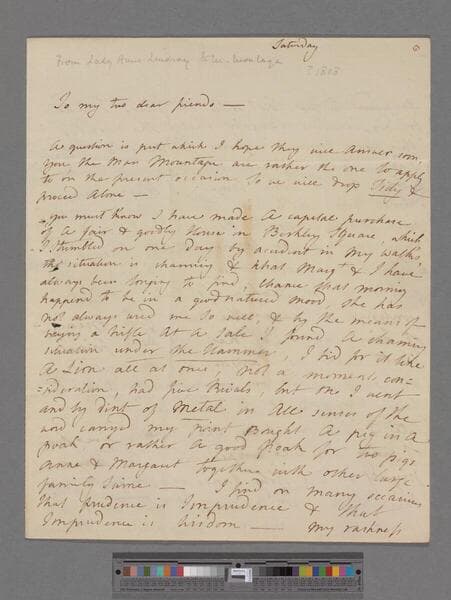 Saturday
6
From Lady Anne Lindsay to Mr. Montagu
? 1808
To my two dear friends —
A question is put which I hope they will answer soon,
you the Man Mountagu are rather the one to apply
to on the present occasion so we will drop Lady &
proceed alone —
you must know I have made a capital purchase
of a fair & goodly House in Berkley Square, which
I stumbled on one day by accident in my walks,
the situation is charming & what Margt & I have
always been longing to find, chance that morning
happend to be in a goodnatured mood she has
not always used me so well, & by the means of
buying a trifle at a sale I found a charming
situation under the Hammer, I bid for it like
a Lion all at once, not a moment con=
=sideration, had five Rivals, but on I went
and by dint of Metal in all senses of the
word carryd my point Bought a pig in a
poak or rather a good Poak for two pigs
Anne & Margaret together with other large
family
I find on many occasions
that prudence is Imprudence & that
Imprudence is Wisdom — my rashness